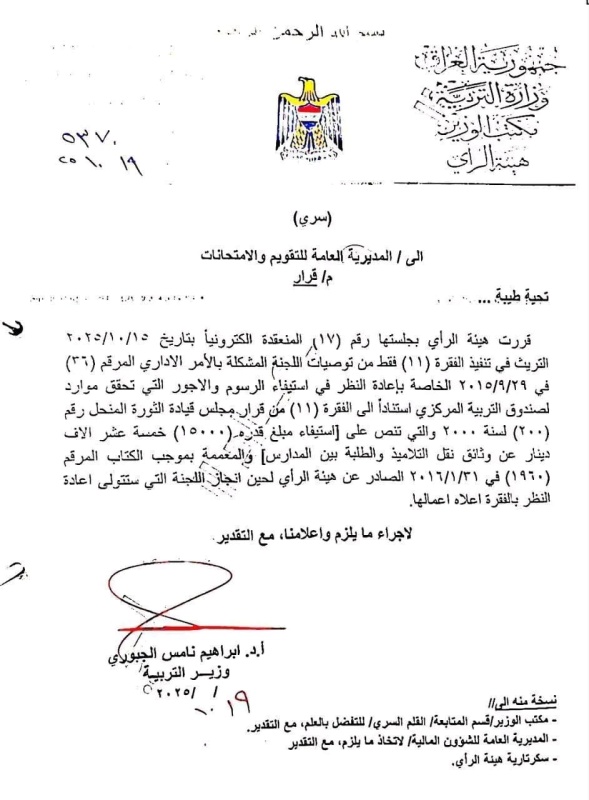 بسم الله الرحمن الرحيم
جمهورية العراق
وزارة التربية
مكتب الوزير
هيئة الرأي
٥٣٧٠
٢٥ ١٠ ١٩
(سري)
الى / المديرية العامة للتقويم والامتحانات
م/ قرار
تحية طيبة ...
قررت هيئة الرأي بجلستها رقم (١٧) المنعقدة الكترونياً بتاريخ ٢٠٢٥/١٠/١٥
التريث في تنفيذ الفقرة (١١) فقط من توصيات اللجنة المشكلة بالأمر الاداري المرقم (٣٦)
في ٢٠١٥/٩/٢٩ الخاصة بإعادة النظر في استيفاء الرسوم والاجور التي تحقق موارد
لصندوق التربية المركزي استناداً الى الفقرة (١١) من قرار مجلس قيادة الثورة المنحل رقم
(٢٠٠) لسنة ٢٠٠٠ والتي تنص على [استيفاء مبلغ قدره (١٥٠٠٠) خمسة عشر الاف
دينار عن وثائق نقل التلاميذ والطلبة بين المدارس] والمعممة بموجب الكتاب المرقم
(١٩٦٠) في ٢٠١٦/١/٣١ الصادر عن هيئة الرأي لحين انجاز اللجنة التي ستتولى اعادة
النظر بالفقرة اعلاه اعمالها.
لاجراء ما يلزم واعلامنا، مع التقدير.
أ.د. ابراهيم نامس الجبوري
وزيـــر التربيـة
٢٠٢٥/ /
١٠ ١٩
نسخة منه الى//
- مكتب الوزير/قسم المتابعة/ القلم السري/ للتفضل بالعلم، مع التقدير.
- المديرية العامة للشؤون المالية/ لاتخاذ ما يلزم، مع التقدير
- سكرتارية هيئة الرأي.